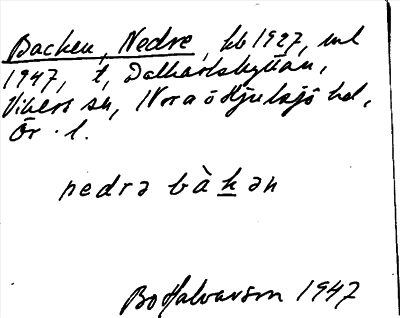 Backen, Nedre, kb 1927, ml
1947, t, Dalkarlshyttan,
Vikers sn, Nora o Hjulsjö hd,
Ör. l.
nedrə bàkən
Bo Halvarson 1947